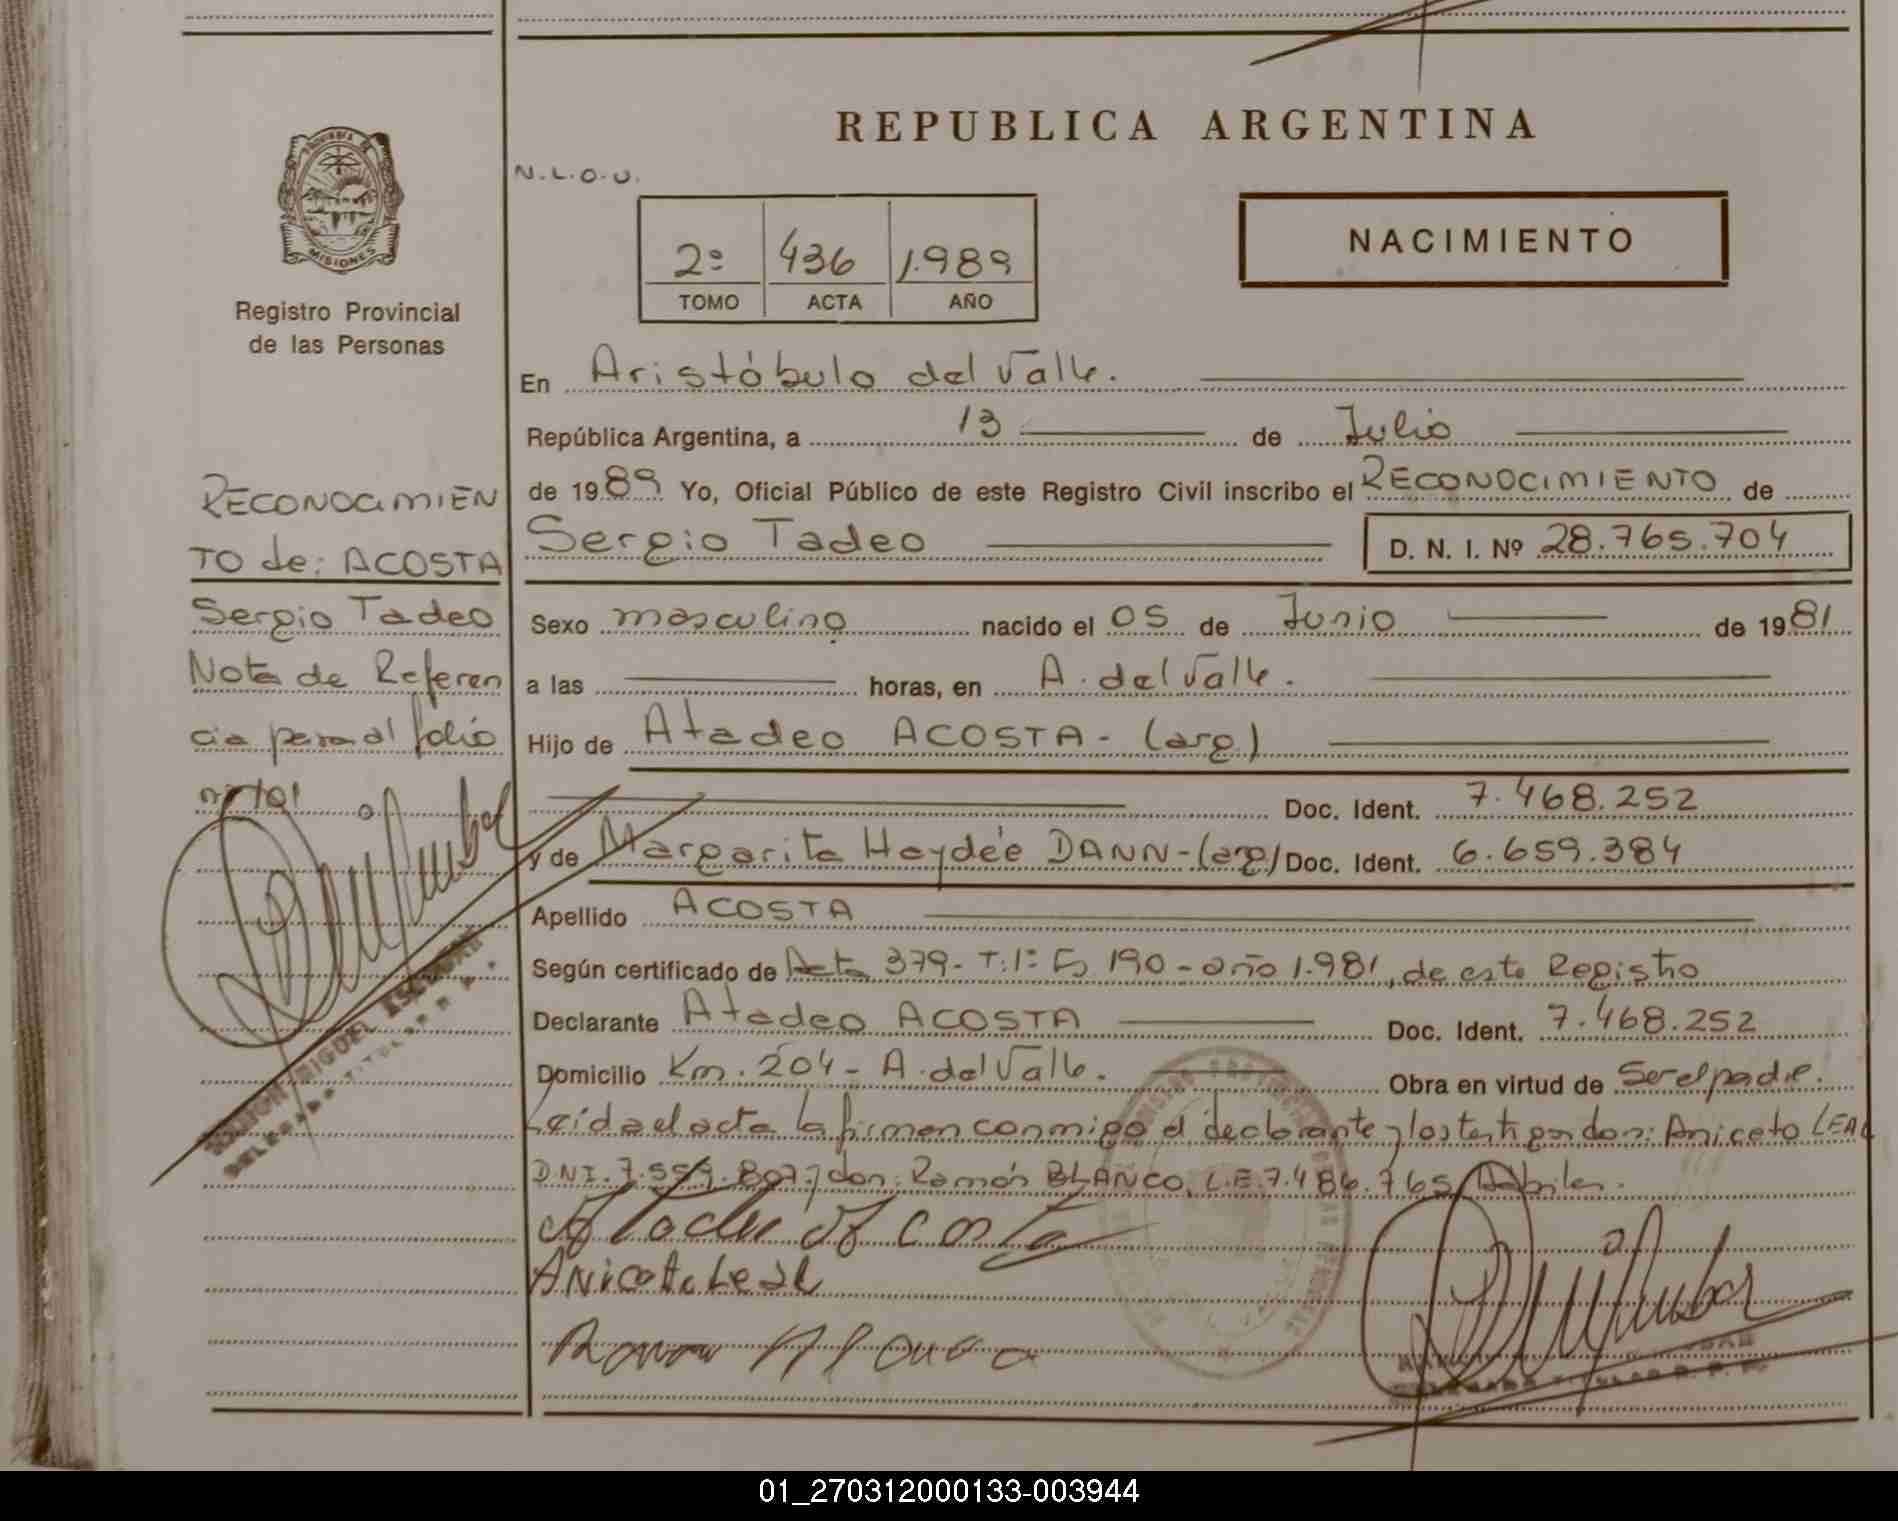 REPUBLICA ARGENTINA
PROVINCIA DE
MISIONES
Registro Provincial
de las Personas
N.L.O.U.
2º 436 1.989
TOMO ACTA AÑO
NACIMIENTO
En Aristóbulo del Valle.
República Argentina, a 13 de Julio
de 1989 Yo, Oficial Público de este Registro Civil inscribo el RECONOCIMIENTO de
Sergio Tadeo D. N. I. Nº 28.765.704
Sexo masculino nacido el 05 de Junio de 1981
a las horas, en A. del Valle.
Hijo de Atadeo ACOSTA - (arg)
Doc. Ident. 7.468.252
y de Margarita Haydée DANN - (arg) Doc. Ident. 6.659.384
Apellido ACOSTA
Según certificado de Acta 379 - T: 1º Fº 190 - año 1.981, de este Registro
Declarante Atadeo ACOSTA Doc. Ident. 7.468.252
Domicilio Km. 204 - A. del Valle. Obra en virtud de Ser el padre.
Leída el acta la firman conmigo el declarante y los testigos don: Aniceto LEAL
D.N.I. 7.559.807 y don: Ramón BLANCO, L.E. 7.486.765 Hábiles.
Atadeo Acosta
Aniceto Leal
Ramon Blanco
DELEGADO TITULAR R. P. P.
RECONOCIMIEN
TO de: ACOSTA
Sergio Tadeo
Nota de Referen
cia pasa al folio
nº 101
RAMON MIGUEL ESCOBAR
DELEGADO TITULAR R. P. P.
01_270312000133-003944